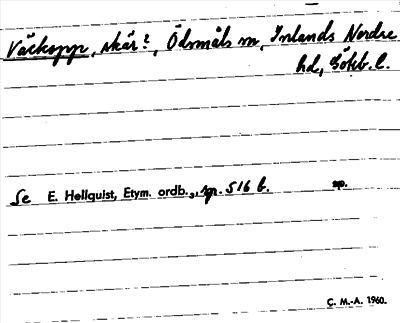 Väckopp, skär?, Ödsmåls sn, Inlands Nordre
hd, Götb. l.
Se E. Hellquist, Etym. ordb.₃, sp. 516 b. sp.
C. M.-A. 1960.